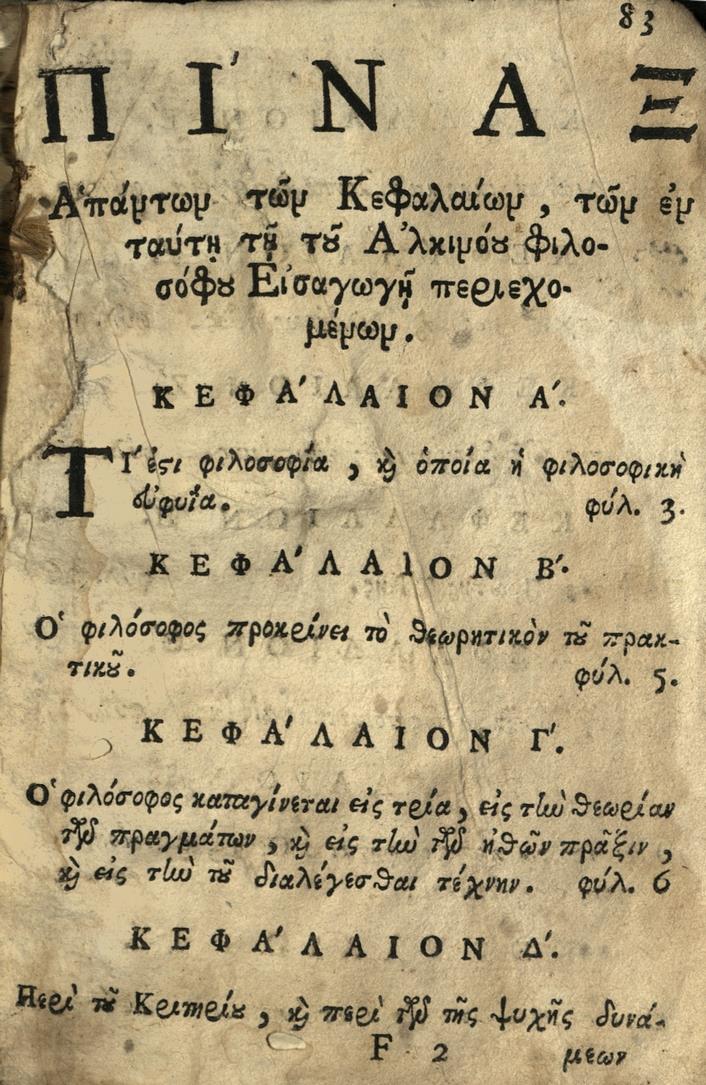 83
ΠΙ´ΝΑΞ
Ἁπάντων τῶν Κεφαλαίων, τῶν ἐν
ταύτῃ τῇ τȣ͂ Ἀλκινόȣ φιλο-
σόφȣ Εἰσαγωγῇ περιεχο-
μένων.
ΚΕΦΑ´ΛΑΙΟΝ Α´.
ΤΙ´ ἐϛι φιλοσοφία, ϗ̀ ὁποία ἡ φιλοσοφικὴ
εὐφυΐα. φύλ. 3.
ΚΕΦΑ´ΛΑΙΟΝ Β´.
Ὁ φιλόσοφος προκρίνει τὸ θεωρητικὸν τȣ͂ πρακ-
τικȣ͂. φύλ. 5.
ΚΕΦΑ´ΛΑΙΟΝ Γ´.
Ὁ φιλόσοφος καταγίνεται εἰς τρία, εἰς τὴν θεωρίαν
τῶν πραγμάτων, ϗ̀ εἰς τὴν τῶν ἠθῶν πρᾶξιν,
ϗ̀ εἰς τὴν τȣ͂ διαλέγεσθαι τέχνην. φύλ. 6
ΚΕΦΑ´ΛΑΙΟΝ Δ´.
Περὶ τȣ͂ Κριτηρίȣ, ϗ̀ περὶ τῶν τῆς ψυχῆς δυνά-
F 2 μεων